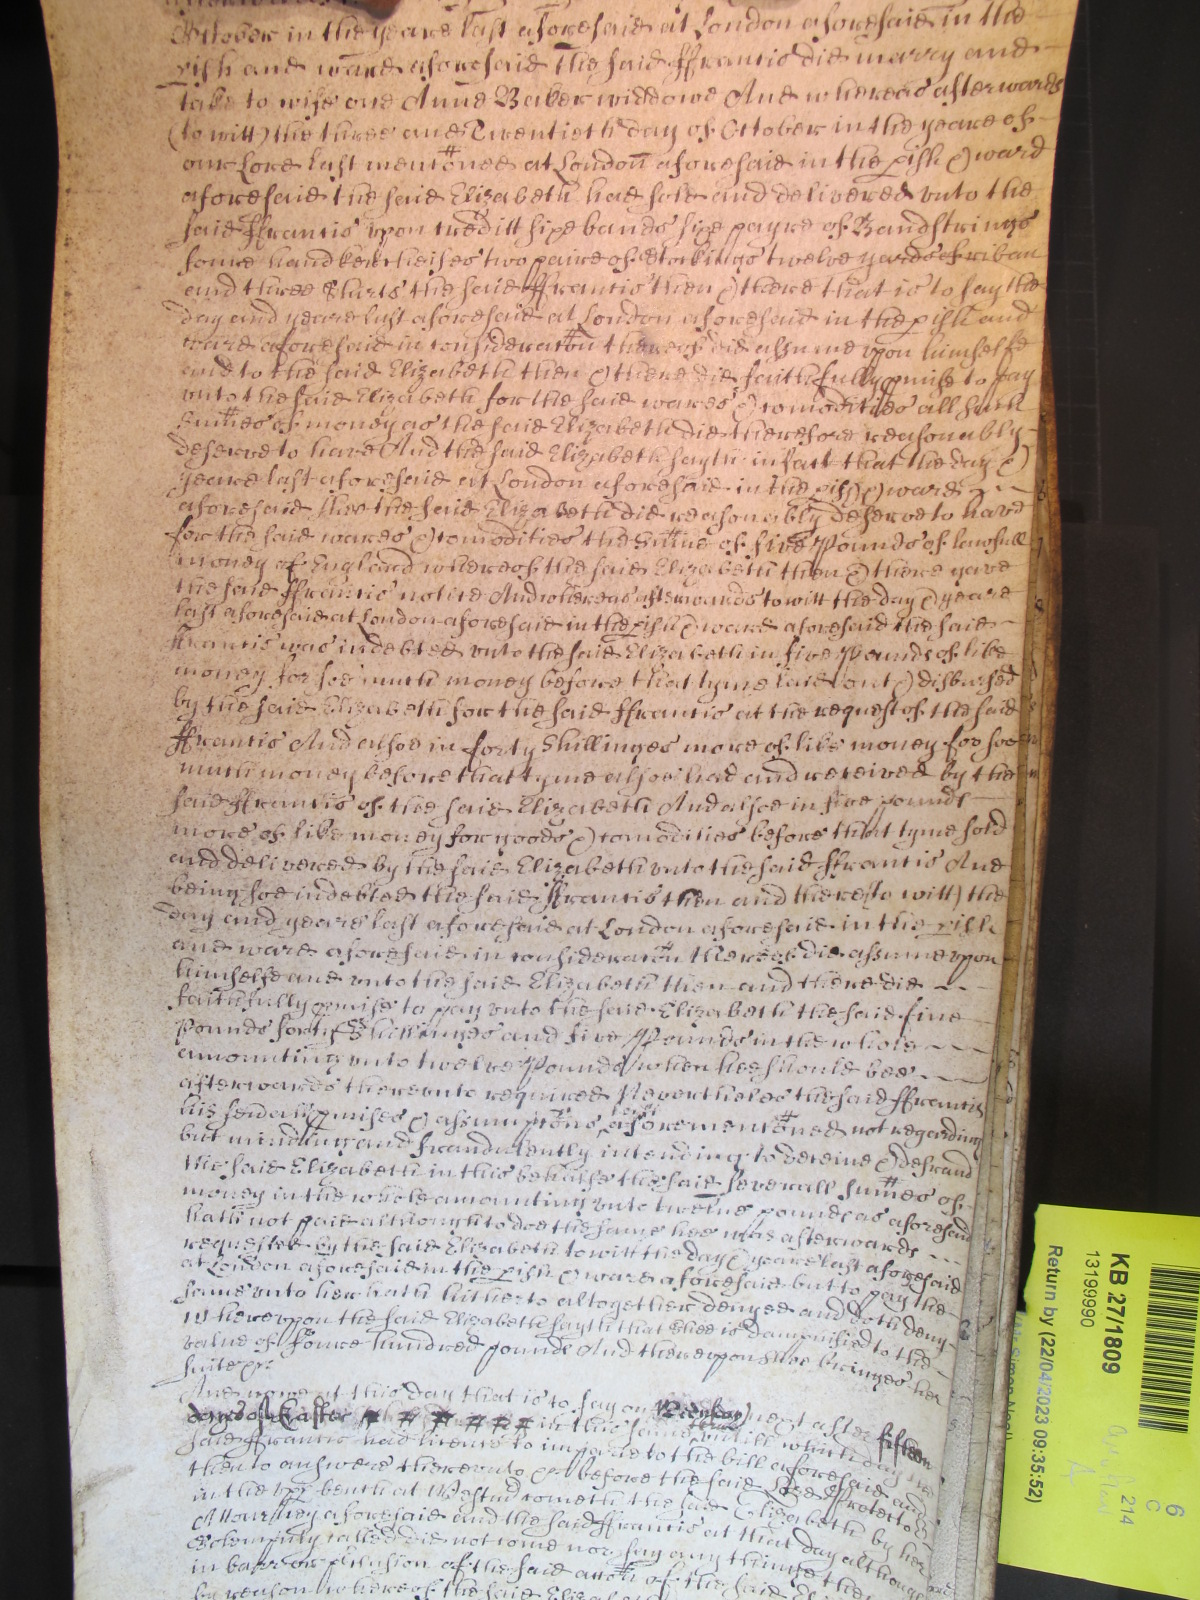 October in the yeare last aforesaid at London aforesaid in the
pish and ward aforesaid the said ffrancis did marry and
take to wife one Anne Baker widdowe And whereas afterwards
(to witt) the three and Twentieth day of October in the yeare of
our Lord last mentoned at London aforesaid in the pish & ward
aforesaid the said Elizabeth had sold and delivered vnto the
said ffrancis vpon creditt sixe bands sixe payre of Bandstrings
foure handkercheifes two paire of Stockings twelve yards of riban
and three Shirts the said ffrancis then & there that is to say the
day and yeare last aforesaid at London aforesaid in the pish and
ward aforesaid in consideracon thereof did assume vpon himselfe
and to the said Elizabeth then & there did faithfully pmise to pay
vnto the said Elizabeth for the said wares & comodities all such
Sumes of money as the said Elizabeth did therefore reasonably
deserve to have And the said Elizabeth sayth in fact that the day &
yeare last aforesaid at London aforesaid in the pish & ward
aforesaid shee the said Elizabeth did reasonably deserve to have
for the said wares & comodities the Sume of five Pounds of lawfull
money of England whereof the said Elizabeth then & there gave
the said ffrancis notice And whereas afterwards to witt the day & yeare
last aforesaid at London aforesaid in the pish & ward aforesaid the said
ffrancis was indebted vnto the said Elizabeth in five Pounds of like
money for soe much money before that tyme laid out & disbursed
by the said Elizabeth for the said ffrancis at the request of the said
ffrancis And alsoe in forty Shillinges more of like money for soe
much money before that tyme alsoe had and received by the
said ffrancis of the said Elizabeth And alsoe in five pounds
more of like money for goods & comodities before that tyme sold
and delivered by the said Elizabeth vnto the said ffrancis And
being soe indebted the said ffrancis then and there (to witt) the
day and yeare last aforesaid at London aforesaid in the pish
and ward aforesaid in consideracon thereof did assume vpon
himselfe and vnto the said Elizabeth then and there did
faithfully pmise to pay vnto the said Elizabeth the said five
Pounds forty Shillinges and five Pounds in the whole
amounting vnto twelve Pounds when hee should bee
afterwards therevnto required Neverthelesse the said ffrancis
his severall pmises & assumptons aforementoned not regarding
but minding and fraudulently intending to deceive & defraud
the said Elizabeth in this behalfe the said severall sumes of
money in the whole amounting vnto twelve pounds as aforesaid
hath not paid although to doe the same hee was afterwards
requested by the said Elizabeth to witt the day & yeare last aforesaid
at London aforesaid in the pish & ward aforesaid but to pay the
same vnto her hath hitherto altogether denyed and doth deny
Whereupon the said Elizabeth sayth that shee is damnified to the
value of foure hundred pounds And therevpon shee bringes her
suite &c
And nowe at this day that is to say on next after fifteen
dayes of Easter in this same vntill which day the
said ffrancis had licence to impale to the bill aforesaid and
then to answere therevnto &c before the said Lord Protector
in the vpper bench at Westm cometh the said Elizabeth by her
Attourney aforesaid and the said ffrancis at that day although
solempnly called did not come nor say any thinge the
in barr or pclusion of the said accon of the said
by reason whereof the said
KB 27/1809
13199990
Return by (22/04/2023 09:35:52)
6
C
214